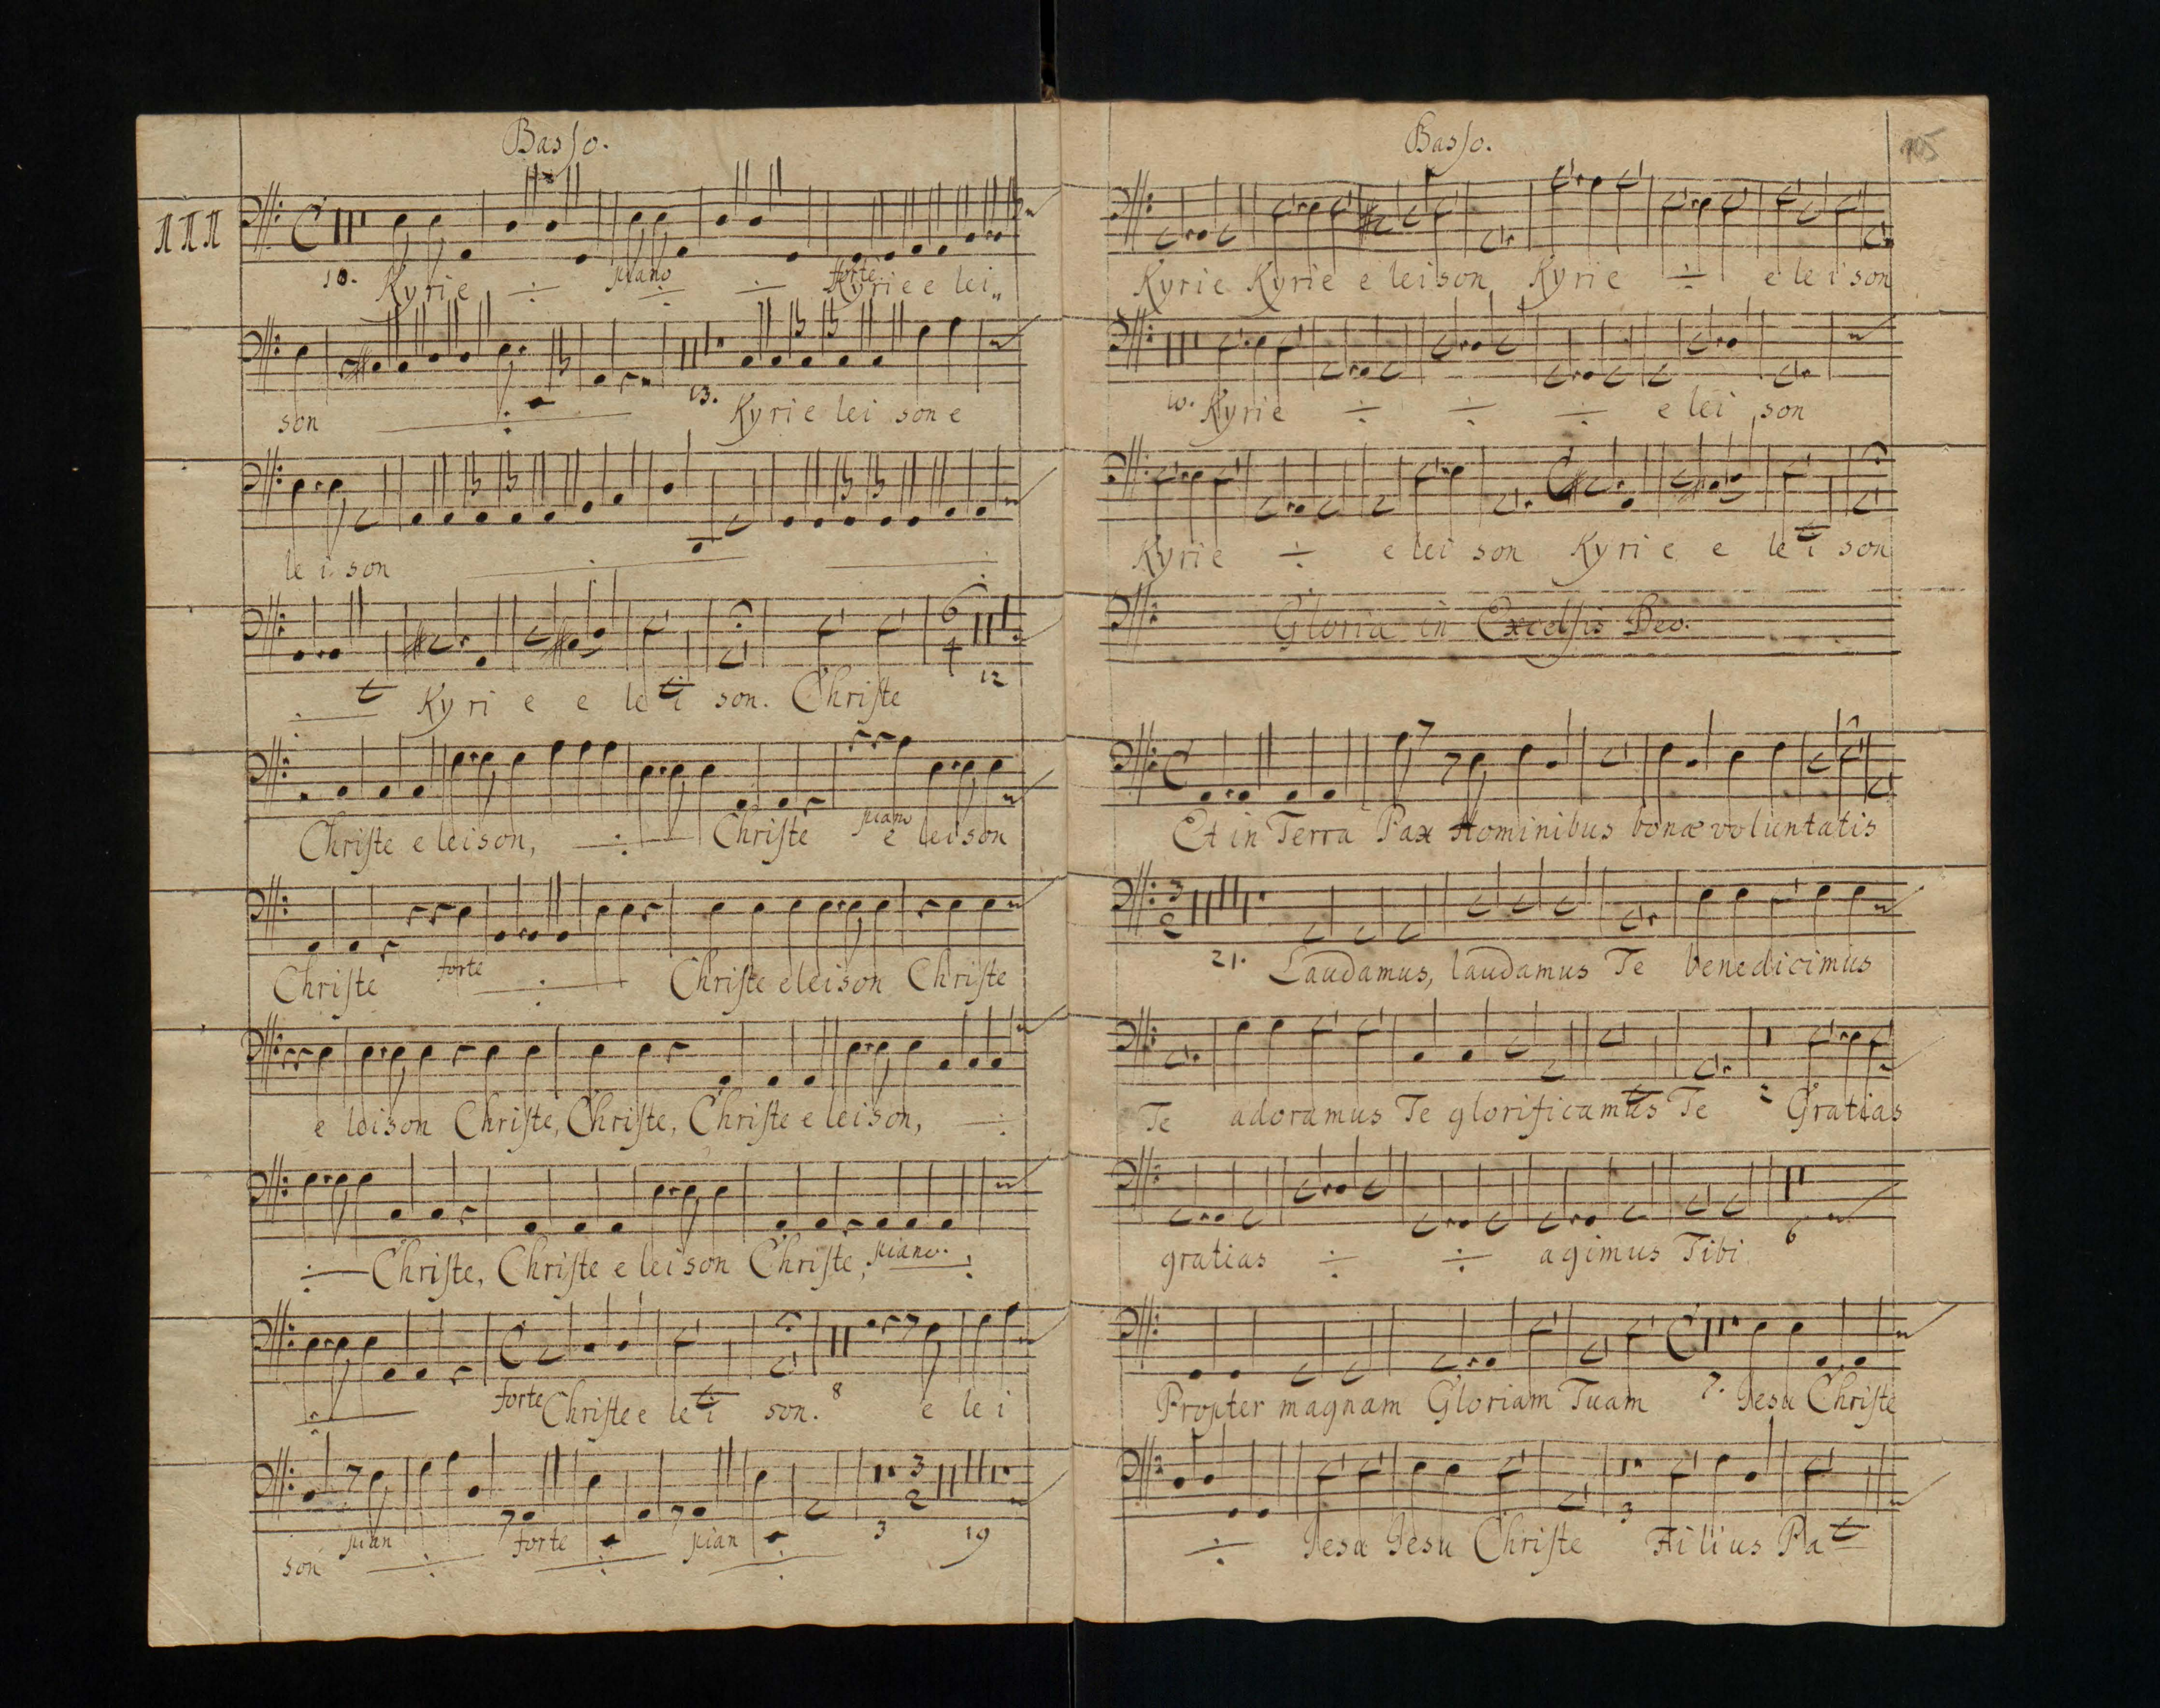 Basso.
III
10. Kyrie ÷ piano ÷ ÷ forte Kyrie e lei„
son ÷ 13. Kyrie lei son e
le i son ÷ ÷
÷ Kyri e e le i son. Christe 12
Christe e leison, ÷ Christe piano e leison
Christe forte ÷ Christe eleison Christe
e leison Christe, Christe, Christe e leison, ÷
÷ Christe, Christe e leison Christe, piano. ÷
÷ forte Christe e le i son. 8 e le i
son pian ÷ forte ÷ pian ÷ 3 3 2 19
Basso.
105
Kyrie Kyrie e leison Kyrie ÷ e le i son
10. Kyrie ÷ ÷ ÷ e lei son
Kyrie ÷ e lei son Kyri e e le i son
Gloria in Excelsis Deo.
Et in Terra Pax Hominibus bonæ voluntatis
21. Laudamus, laudamus Te benedicimus
Te adoramus Te glorificamus Te 2 Gratias
gratias ÷ ÷ agimus Tibi 6
Propter magnam Gloriam Tuam 7. Jesu Christe
÷ Jesu Jesu Christe 3 Filius Pa